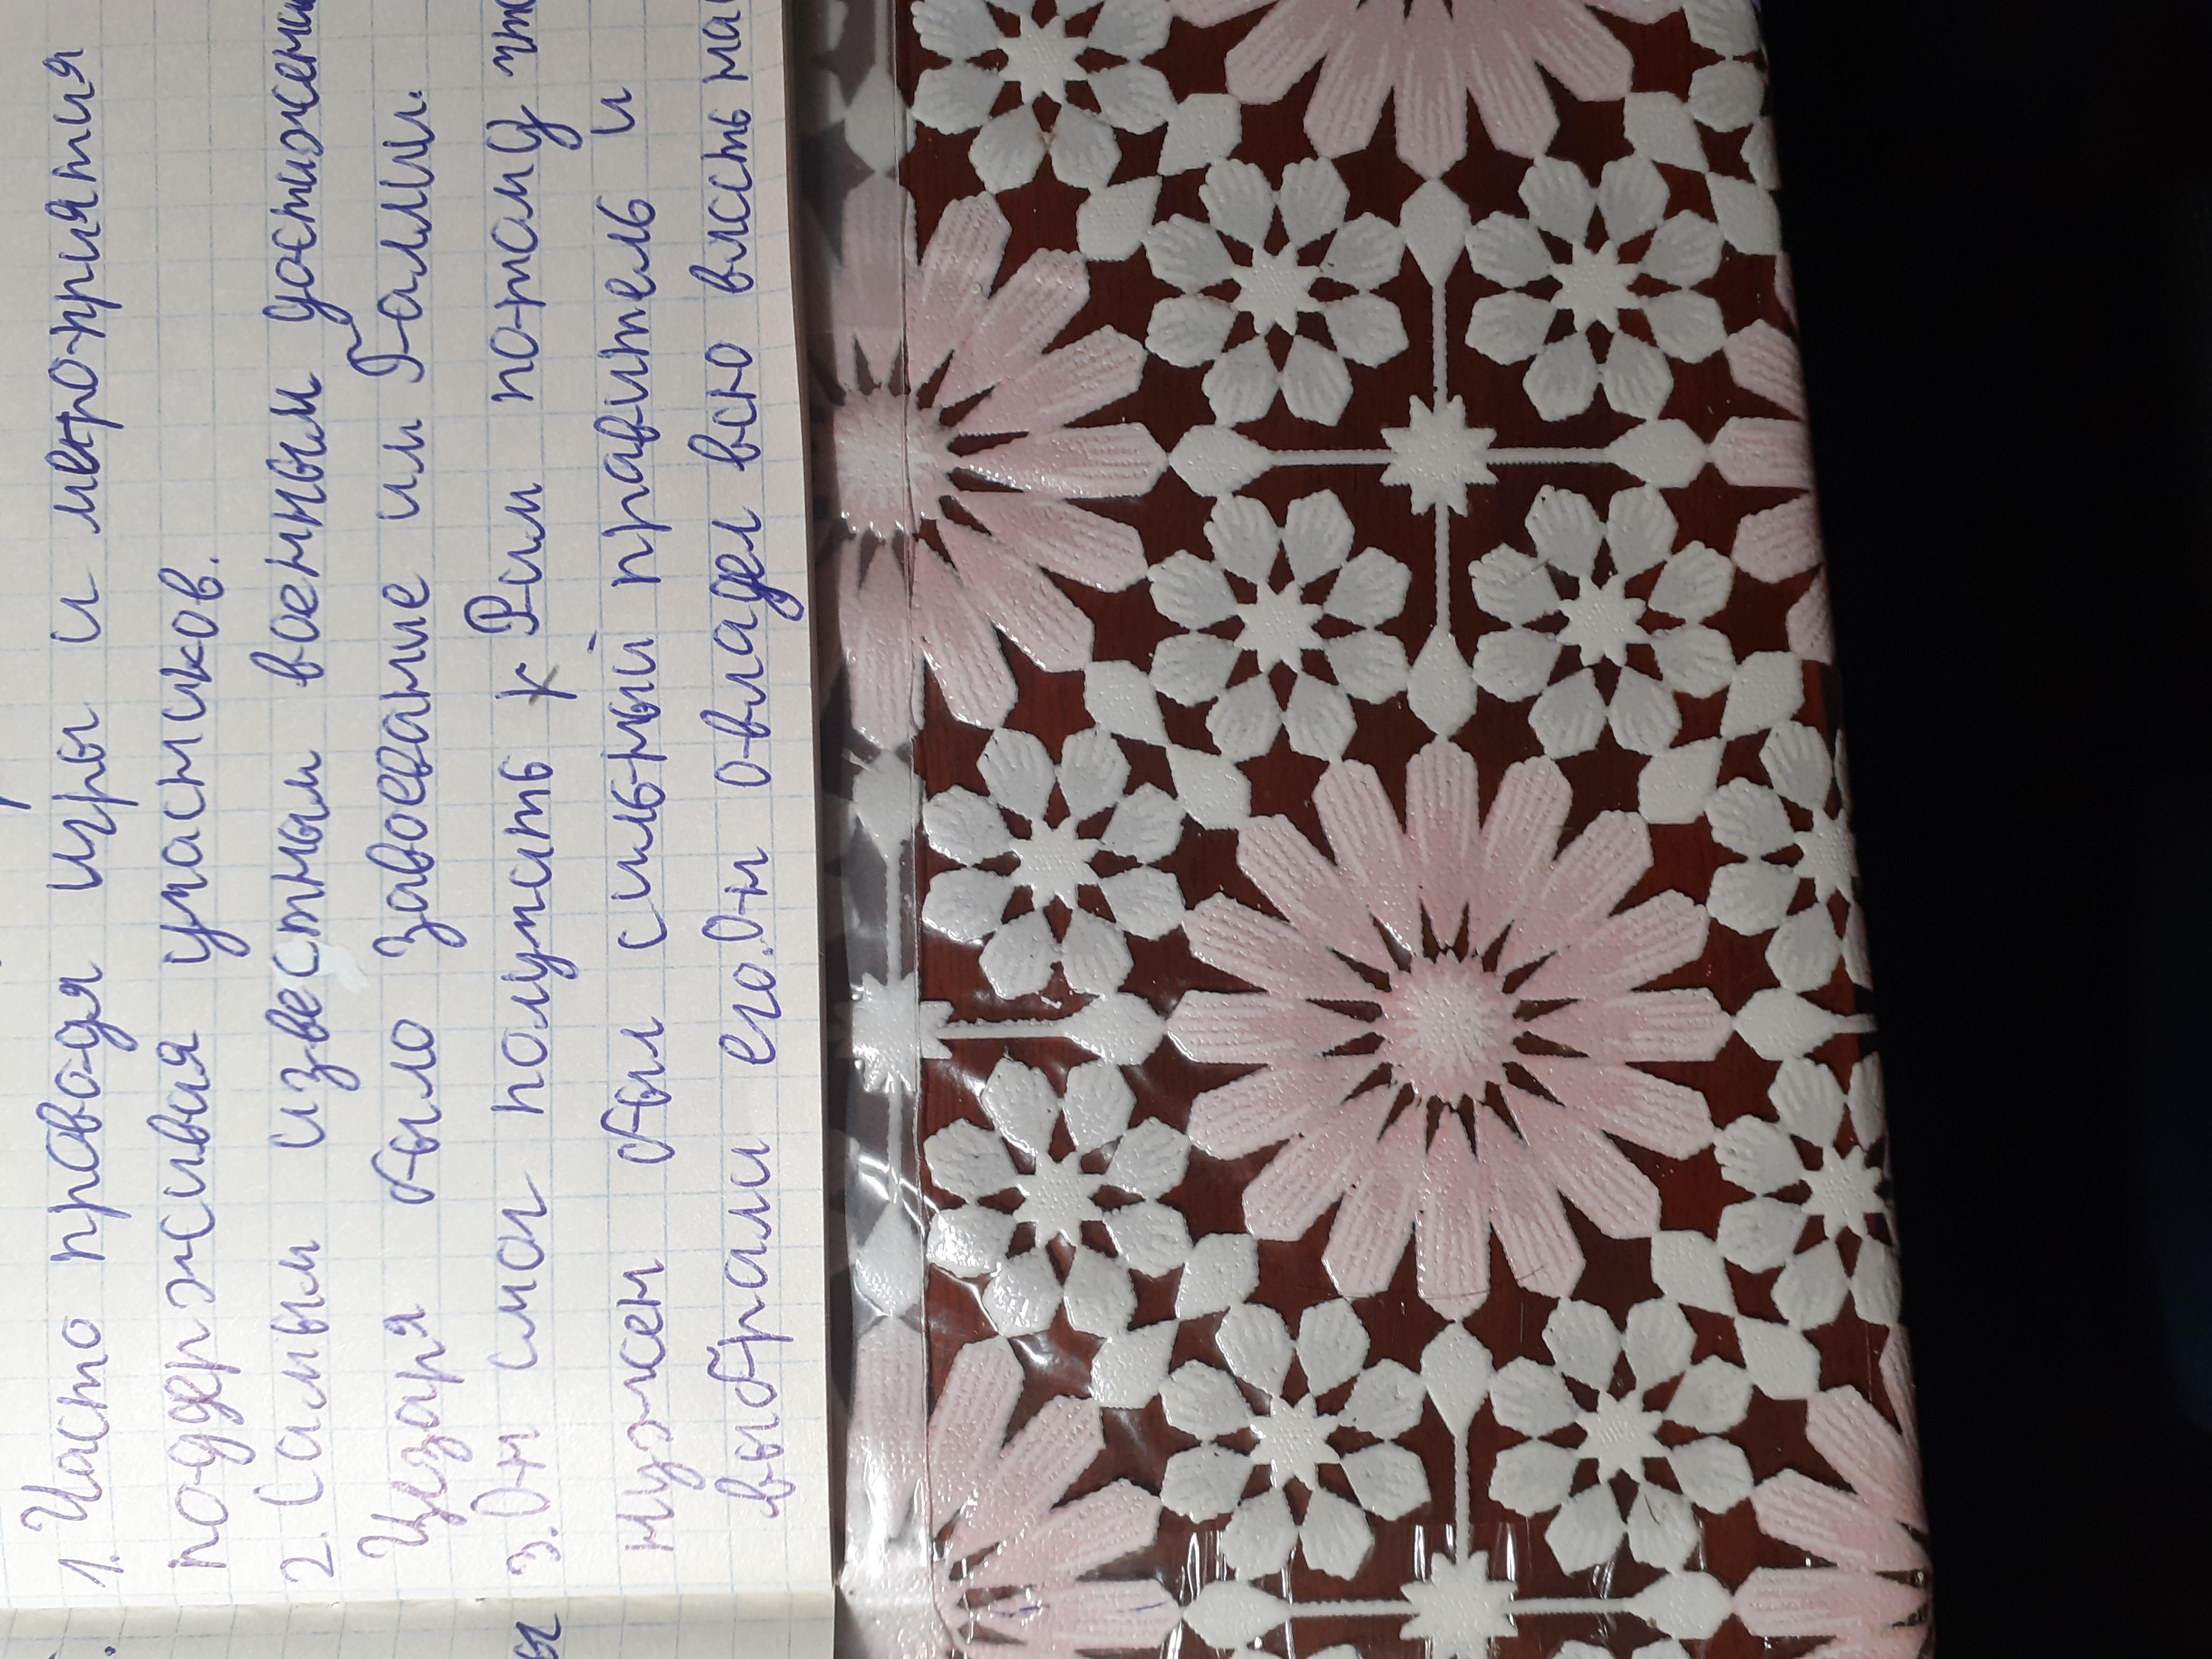 1. Часто праводя игры и мероприятия
поддерживая участников.
2. Самым известным военным достижени
Цезаря было завоевание им Галлии.
3. Он смог получить к Рим потому чт
нужен был сильный правитель и
выбрали его. Он овладел всю власть на
ы